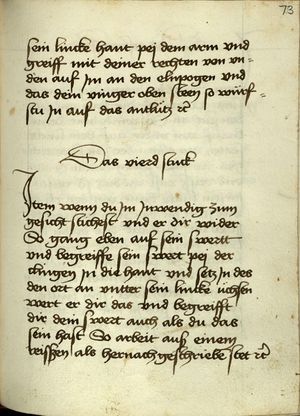 73
sein lincke hant pej dem arm vnd
greiff mit deiner rechten von vn=
den auf Im an den elnpogen vnd
das dein vinger oben sten so würf=
stu In auf das antlütz rc
Das vierd stuck
Item wenn du Im Inwendig zum
gesicht stichest vnd er dir wider
So gang eben auf sein swertt
vnd begreiffe sein swert pej der
clingen In die hant vnd setz In des
den ort an vntter sein lincke üchsen
wert er dir das vnd begreifft
dir dein swert auch als du das
sein hast So arbeit auß einem
reissen als hernach geschriebe stet rc